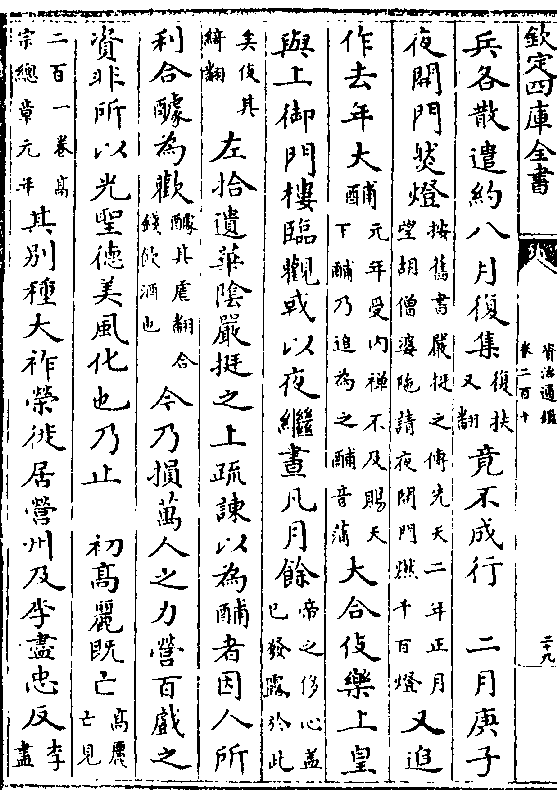 欽定四庫全書
資治通鑑
卷二百十
二十九
兵各散遣約八月復集復扶又翻竟不成行 二月庚子
夜開門然燈按舊書嚴挺之傳先天二年正月望胡僧婆陁請夜開門燃千百燈又追
作去年大酺元年受内禪不及賜天下酺乃追為之酺音蒲大合伎樂上皇
與上御門樓臨觀或以夜繼晝凡月餘帝之侈心蓋已發露於此
矣伎其綺翻左拾遺華隂嚴挺之上疏諫以為酺者因人所
利合醵為歡醵其虐翻合錢飲酒也今乃損萬人之力營百戲之
資非所以光聖德美風化也乃止 初髙麗既亡髙麗亡見
二百一卷髙宗總章元年其别種大祚榮徙居營州及李盡忠反李盡